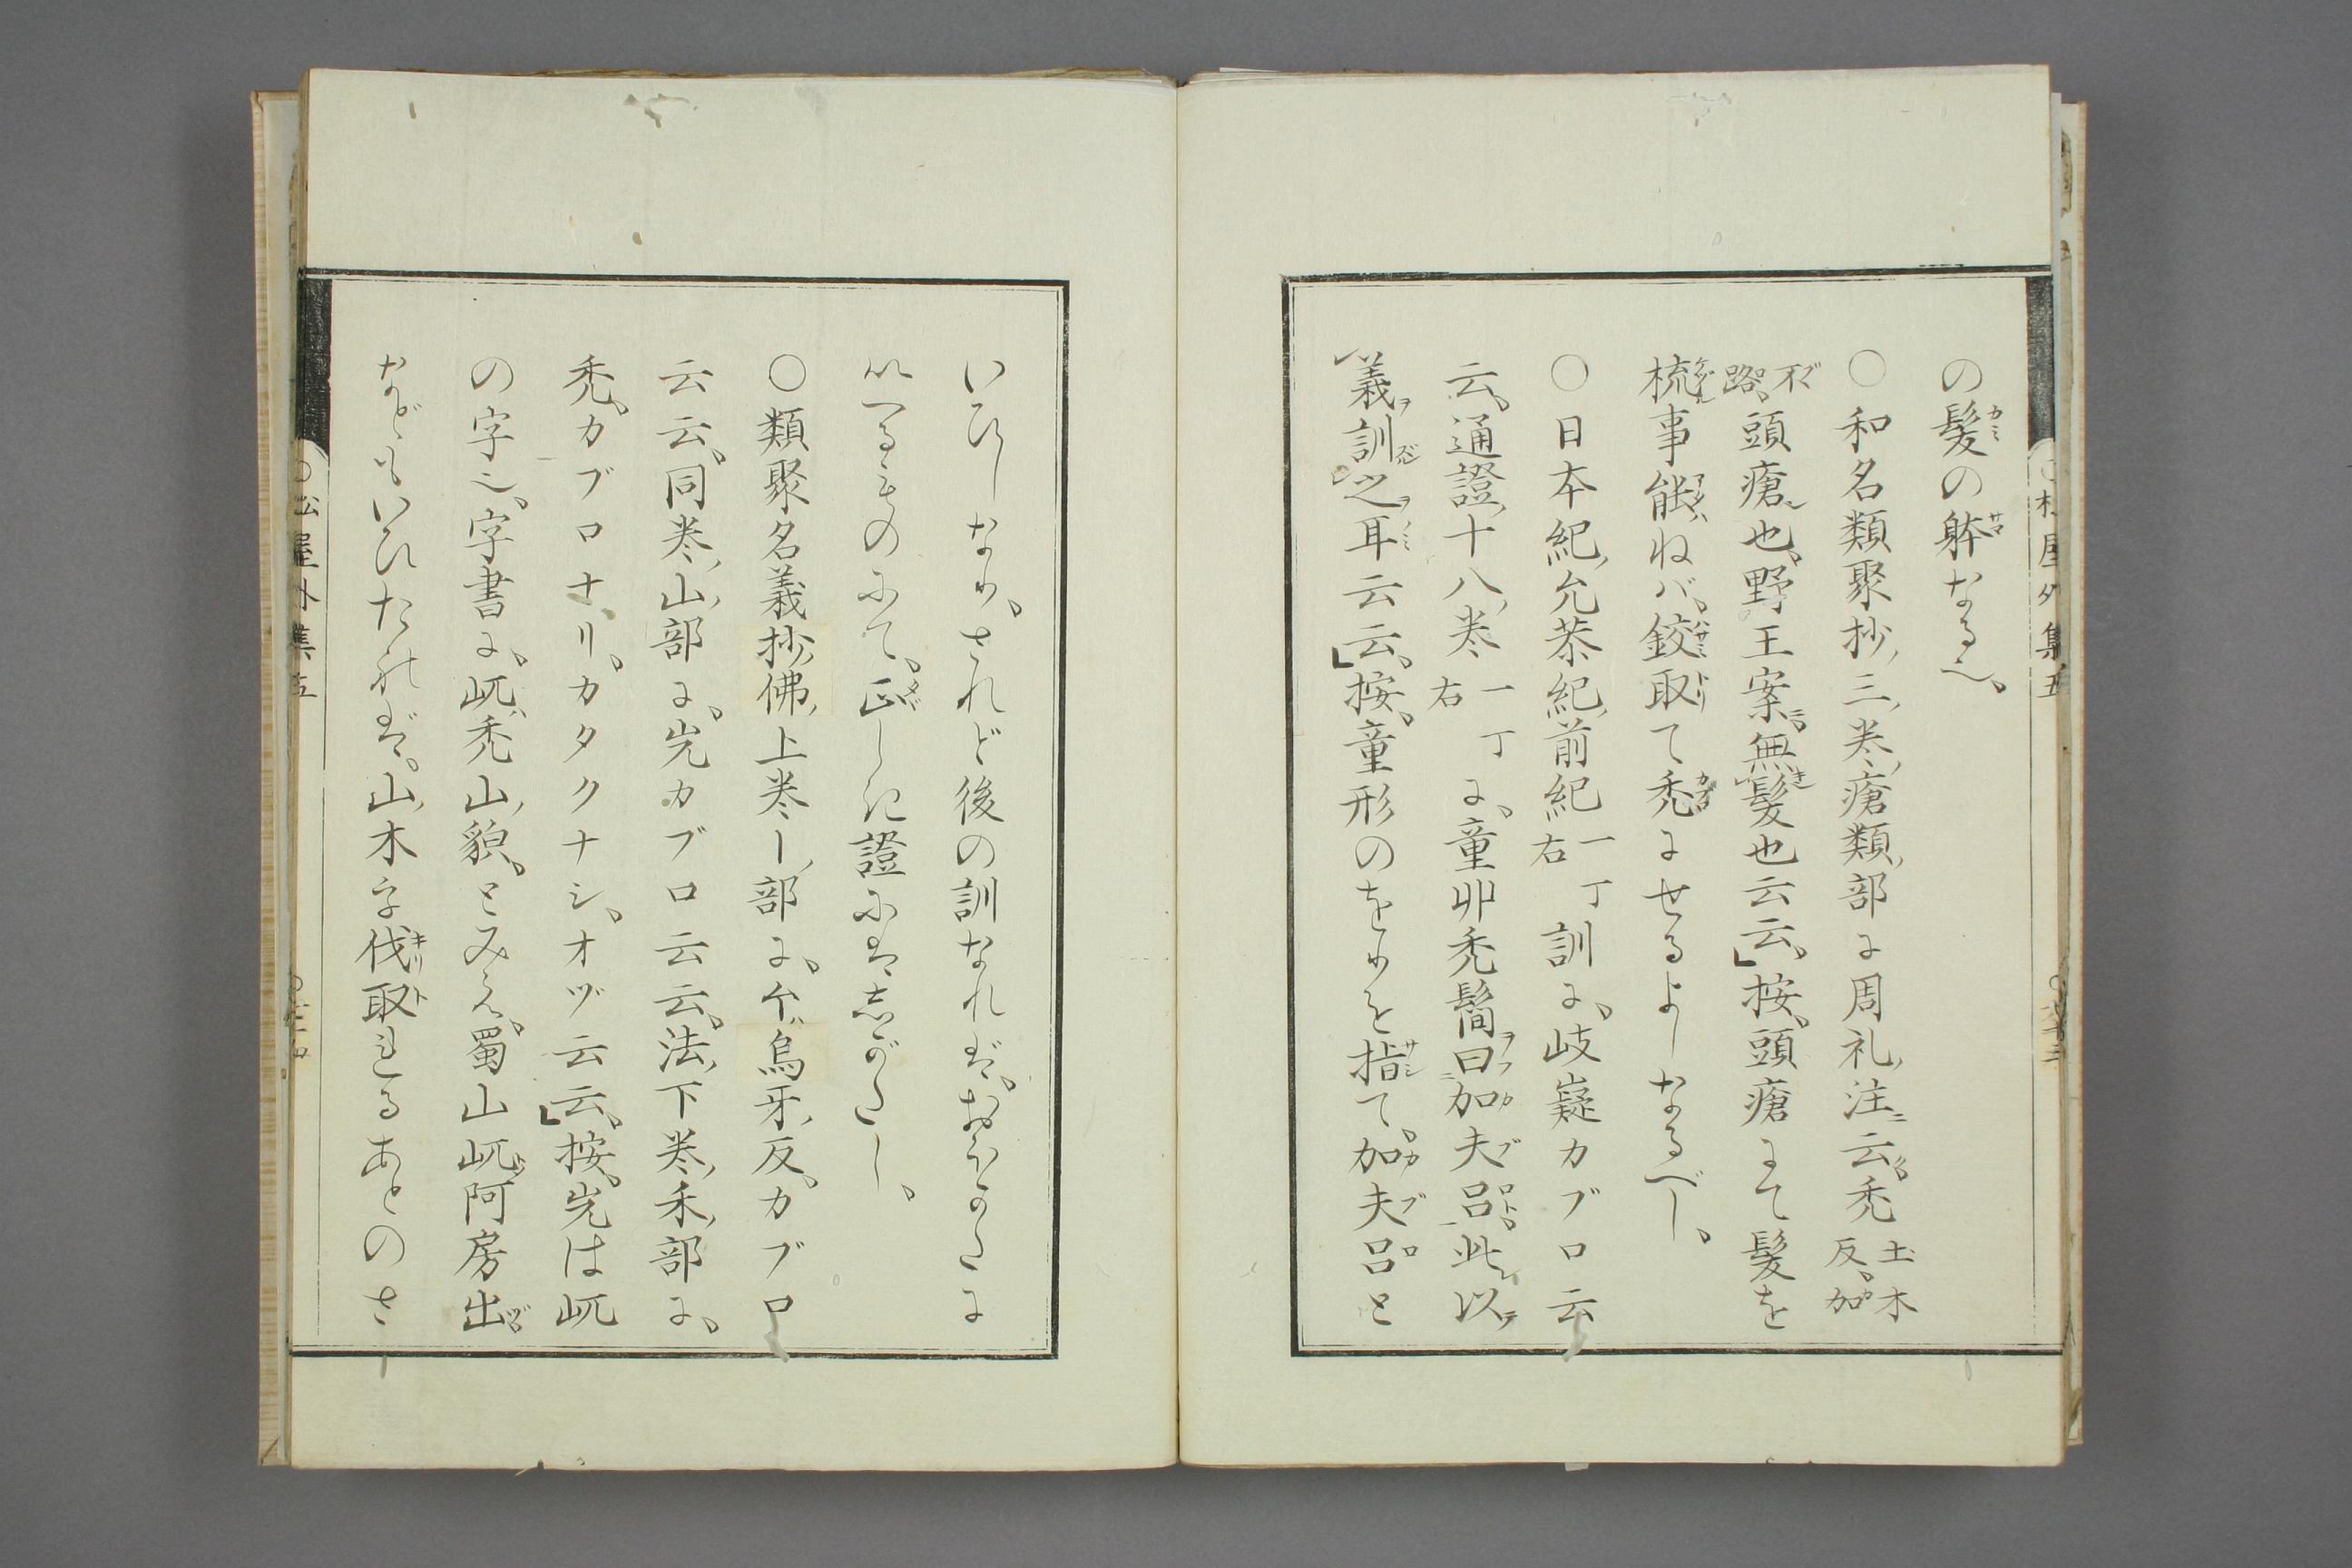 の髪の躰なる也、
○和名類聚抄、三巻、瘡類部に周礼注云禿土木反、加
不路、頭瘡也、野王案、無髪也云云、」按、頭瘡にて髪を
梳事能ねバ、鉸取て禿にせるよしなるべし、
○日本紀、允恭紀、前紀一丁右訓に、岐嶷カブロ云
云、通證、十八巻一丁右に、童丱禿髫曰加夫呂、此以
義訓之耳云云、」按、童形のをりを指て、加夫呂と
いひしなり、されど後の訓なれば、おほかたに
いへるものにて、正しき證にはしがたし、
○類聚名義抄、佛上巻〡部に、个烏牙反、カブロ
云云、同巻、山部に、㞵カブロ云云、法下巻、禾部に、
禿、カブロナリ、カタクナシ、オヅ云云、」按、㞵は屼
の字也、字書に、屼、禿山貌、とみえ、蜀山屼阿房出
などもいひたれば、山木を伐取れるあとのさ
○松屋外集五
○松屋外集五